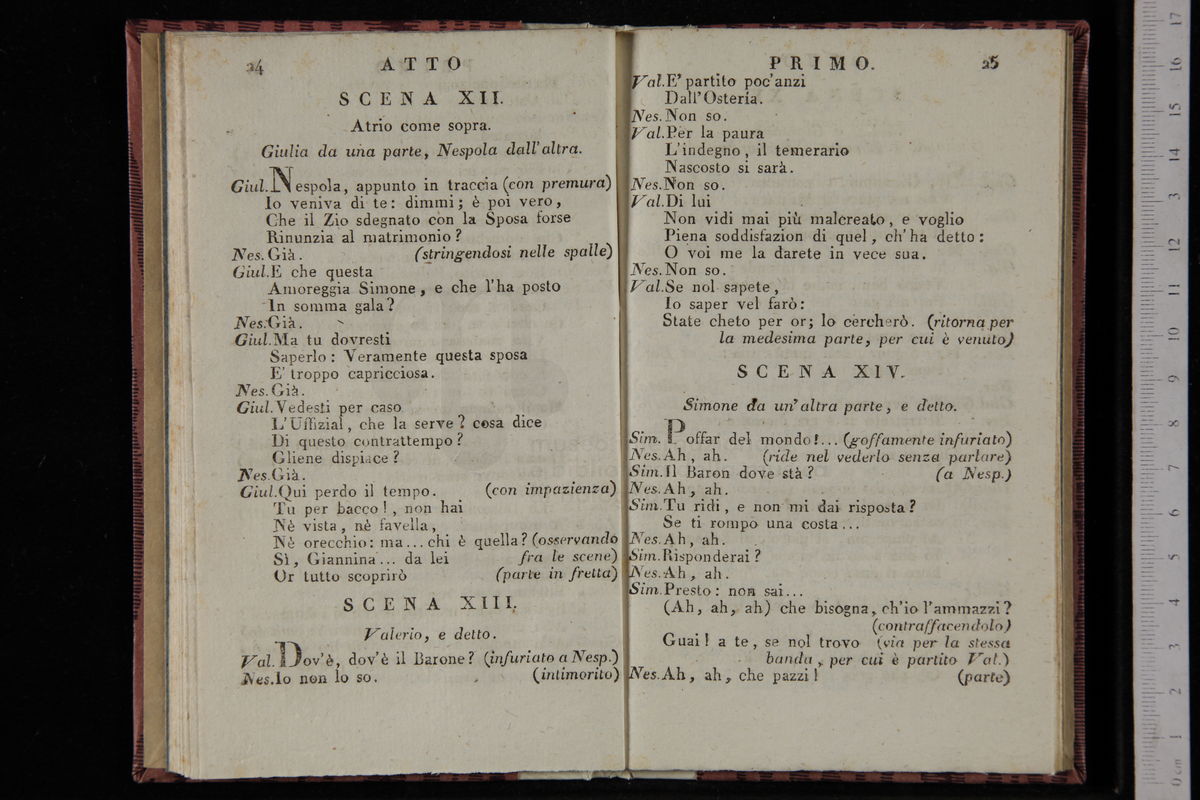 24 ATTO
SCENA XII.
Atrio come sopra.
Giulia da una parte, Nespola dall'altra.
Giul. Nespola, appunto in traccia (con premura)
Io veniva di te: dimmi; è poi vero,
Che il Zio sdegnato con la Sposa forse
Rinunzia al matrimonio?
Nes. Già. (stringendosi nelle spalle)
Giul. E che questa
Amoreggia Simone, e che l'ha posto
In somma gala?
Nes. Già.
Giul. Ma tu dovresti
Saperlo: Veramente questa sposa
E' troppo capricciosa.
Nes. Già.
Giul. Vedesti per caso
L'Uffizial, che la serve? cosa dice
Di questo contrattempo?
Gliene dispiace?
Nes. Già.
Giul. Qui perdo il tempo. (con impazienza)
Tu per bacco!, non hai
Nè vista, nè favella,
Nè orecchio: ma... chi è quella? (osservando
Sì, Giannina... da lei fra le scene)
Or tutto scoprirò (parte in fretta)
SCENA XIII.
Valerio, e detto.
Val. Dov'è, dov'è il Barone? (infuriato a Nesp.)
Nes. Io non lo so. (intimorito)
PRIMO. 25
Val. E' partito poc'anzi
Dall'Osteria.
Nes. Non so.
Val. Per la paura
L'indegno, il temerario
Nascosto si sarà.
Nes. Non so.
Val. Di lui
Non vidi mai più malcreato, e voglio
Piena soddisfazion di quel, ch'ha detto:
O voi me la darete in vece sua.
Nes. Non so.
Val. Se nol sapete,
Io saper vel farò:
State cheto per or; lo cercherò. (ritorna per
la medesima parte, per cui è venuto)
SCENA XIV.
Simone da un'altra parte, e detto.
Sim. Poffar del mondo!... (goffamente infuriato)
Nes. Ah, ah. (ride nel vederlo senza parlare)
Sim. Il Baron dove stà? (a Nesp.)
Nes. Ah, ah.
Sim. Tu ridi, e non mi dai risposta?
Se ti rompo una costa...
Nes. Ah, ah.
Sim. Risponderai?
Nes. Ah, ah.
Sim. Presto: non sai...
(Ah, ah, ah) che bisogna, ch'io l'ammazzi?
(contraffacendolo)
Guai! a te, se nol trovo (via per la stessa
banda, per cui è partito Val.)
Nes. Ah, ah, che pazzi! (parte)
17
16
15
14
13
12
11
10
9
8
7
6
5
4
3
2
1
0 cm